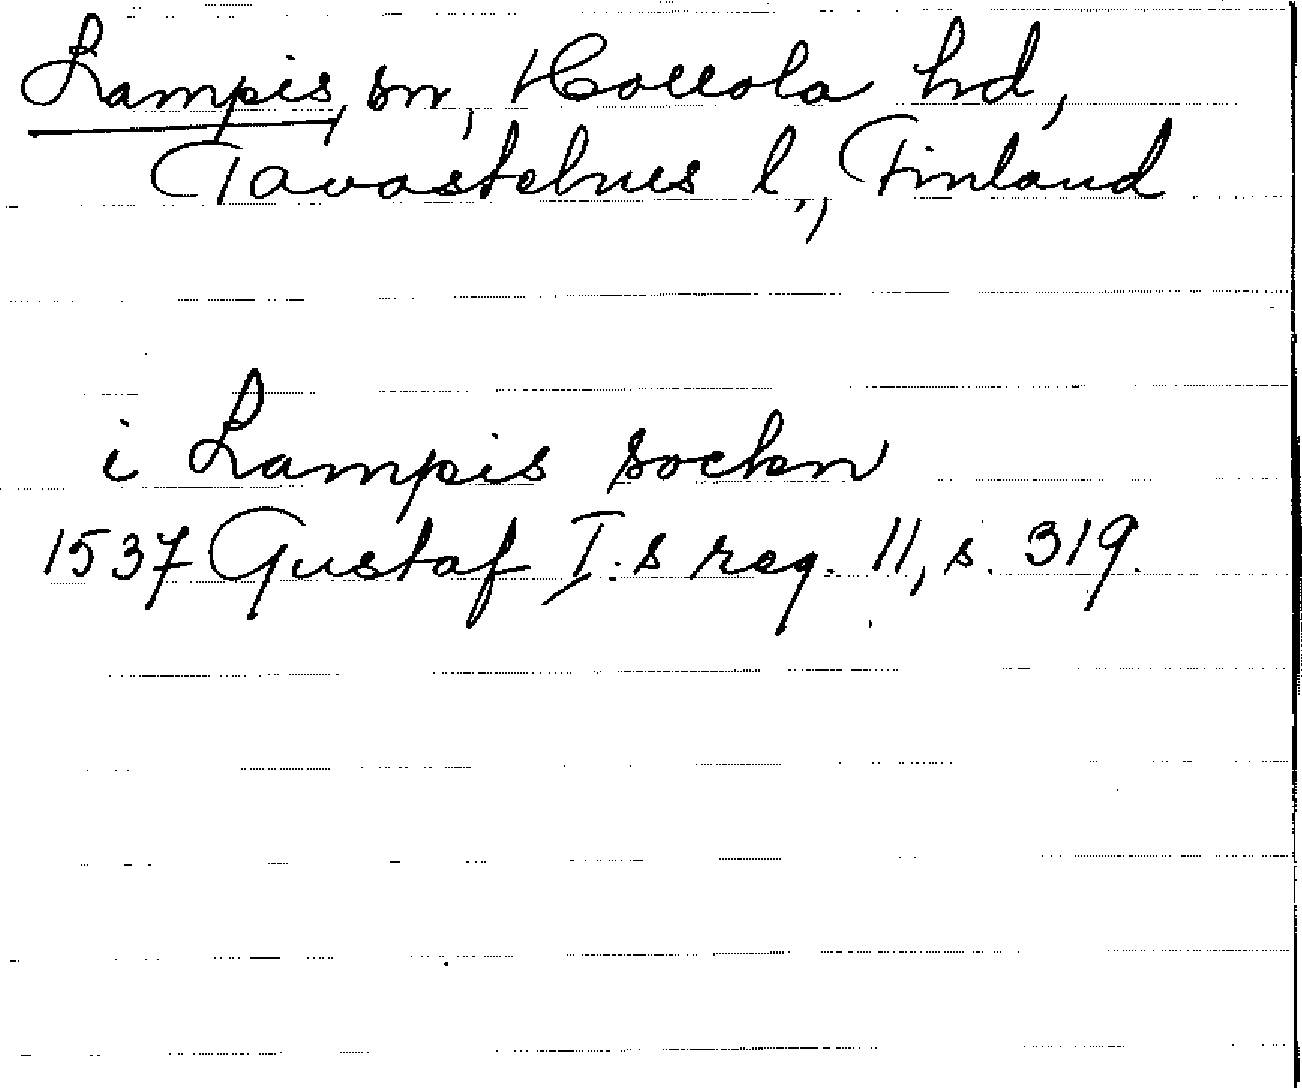 Lampis, sn, Hollola hd,
Tavastehus l., Finland
i Lampis sockn
1537 Gustaf I:s reg. 11, s. 319.